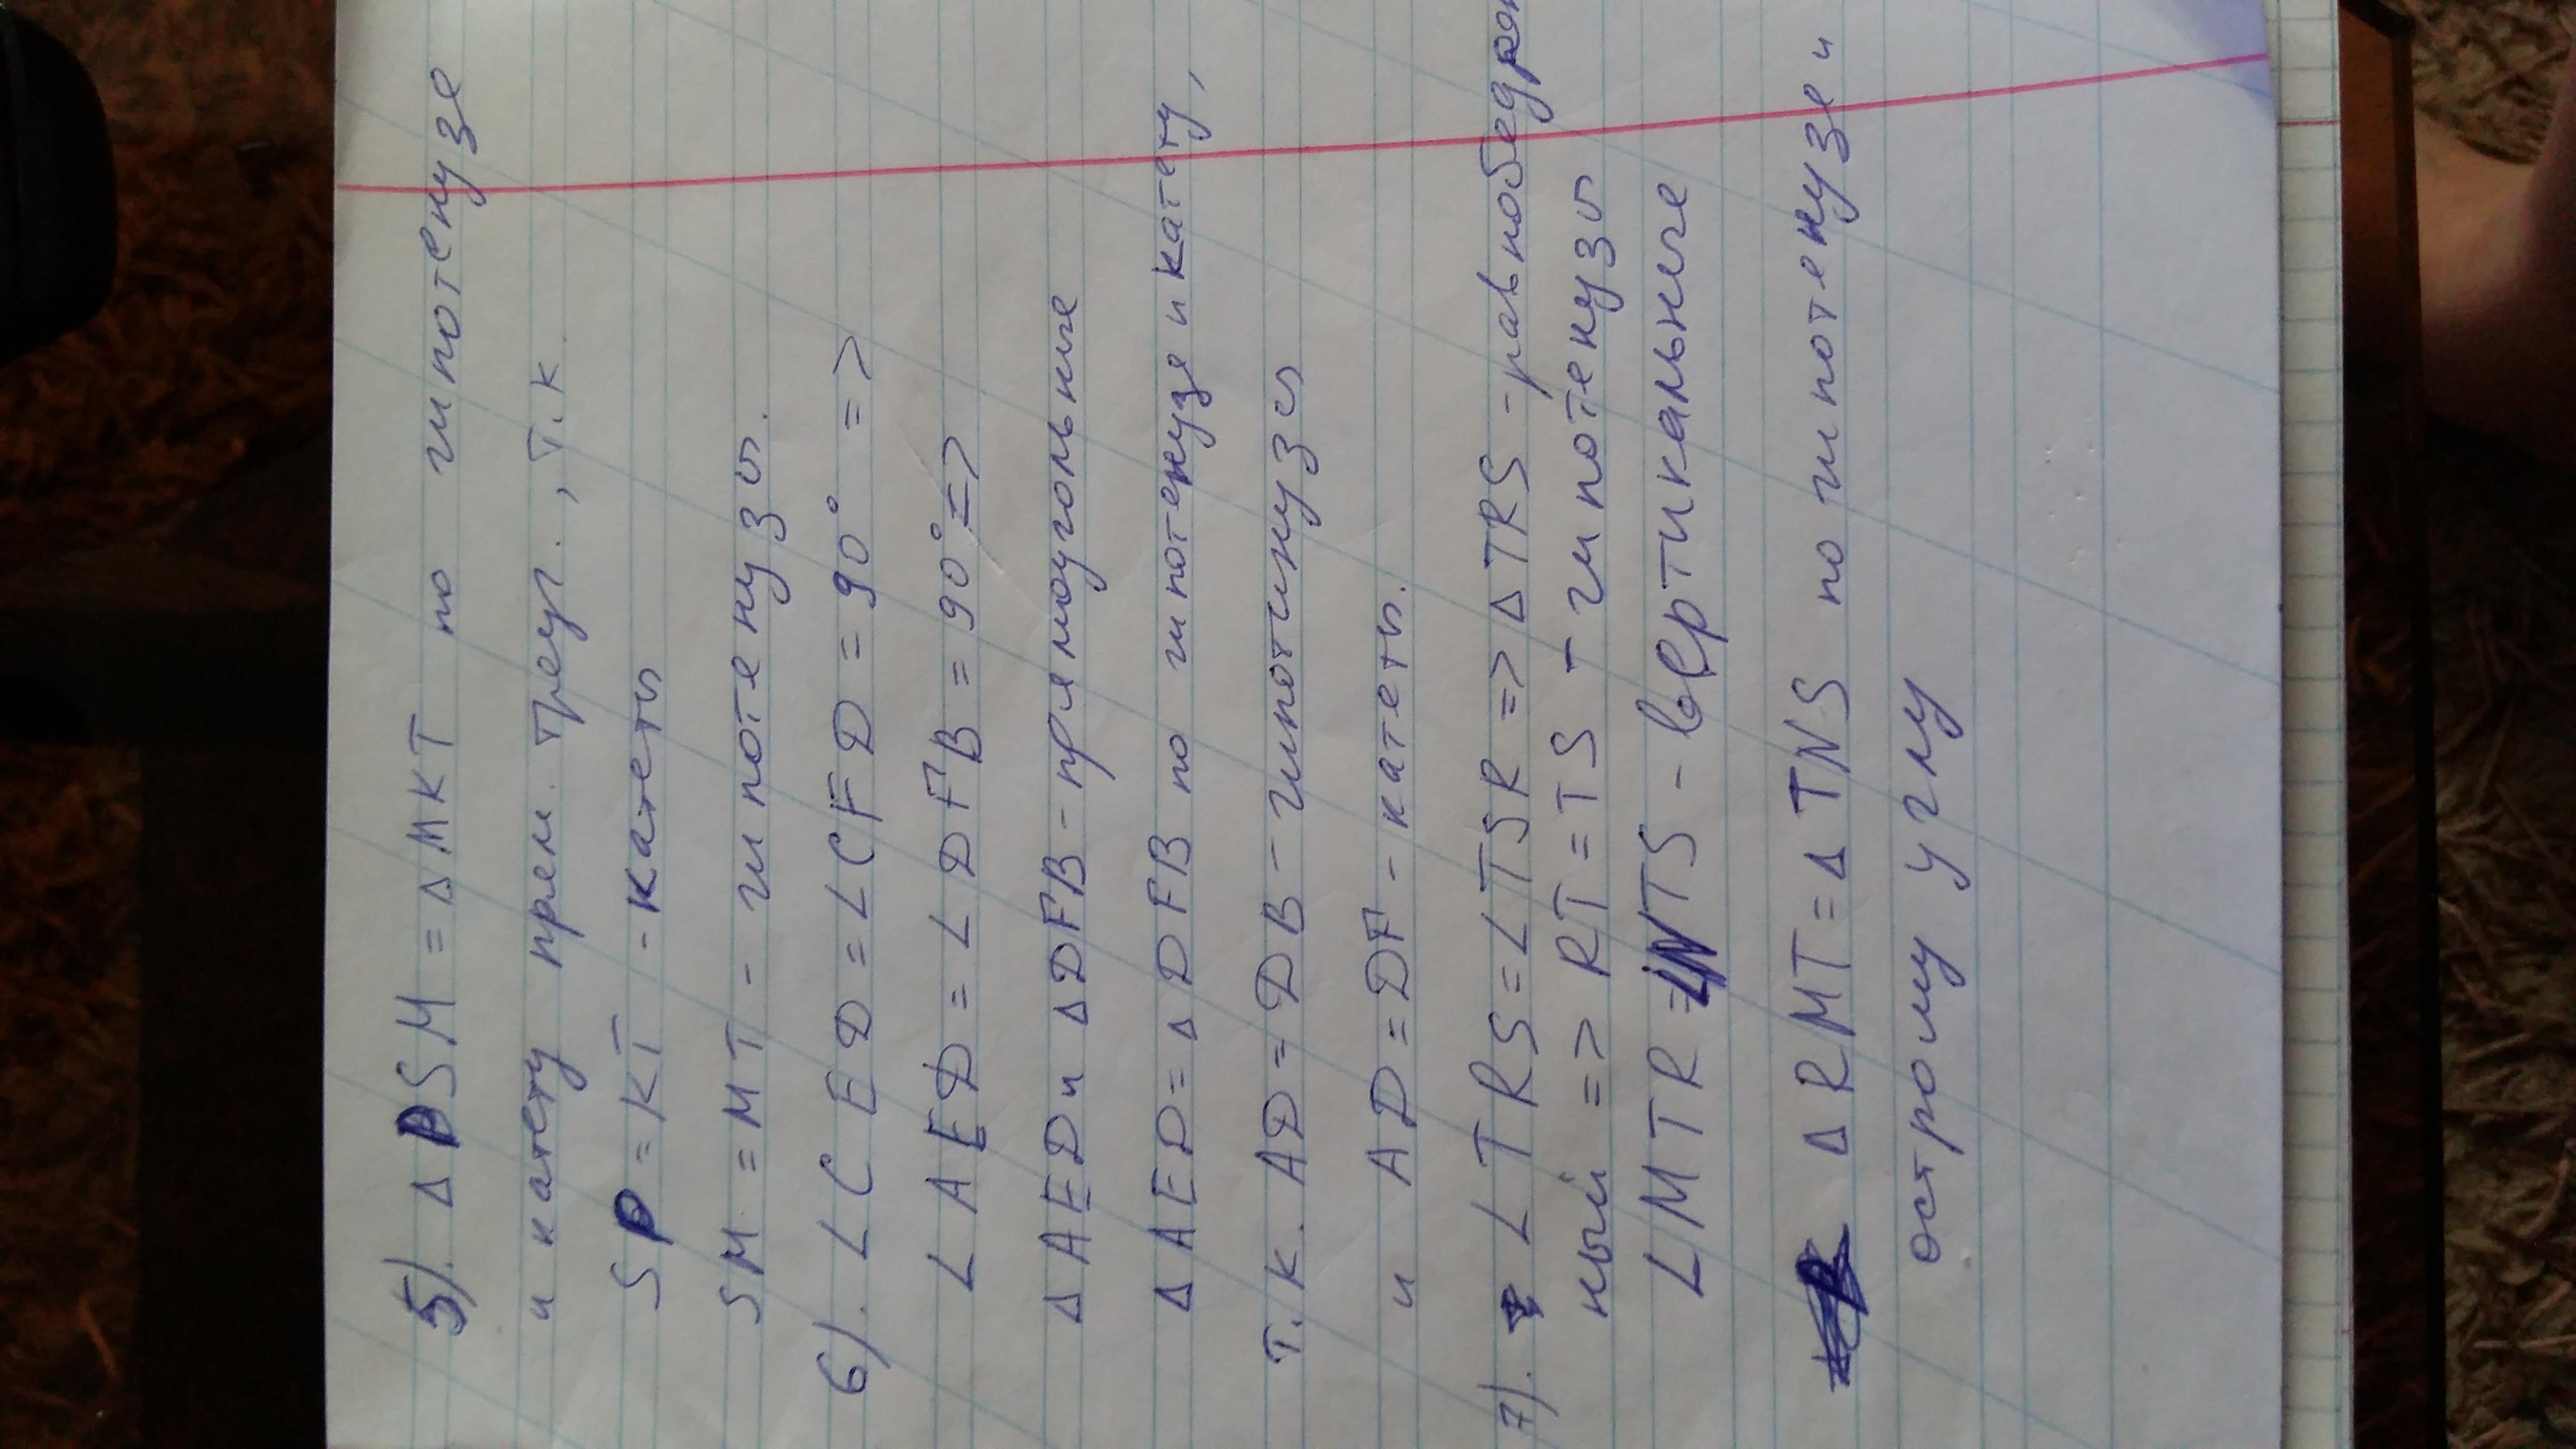 5). ΔPSM = ΔMKT по гипотенузе
и катету прям. треуг., т.к.
SP = KT - катеты
SM = MT - гипотенузы.
6). ∠CED = ∠CFD = 90° =>
∠AED = ∠DFB = 90° =>
ΔAED и ΔDFB - прямоугольные
ΔAED = ΔDFB по гипотенузе и катету,
т.к. AD = DB - гипотинузы
и AD = DF - катеты.
7). ∠TRS = ∠TSR => ΔTRS - равнобедрен
ный => RT = TS - гипотенузы
∠MTR = ∠NTS - вертикальные
ΔRMT = ΔTNS по гипотенузе и
острому углу